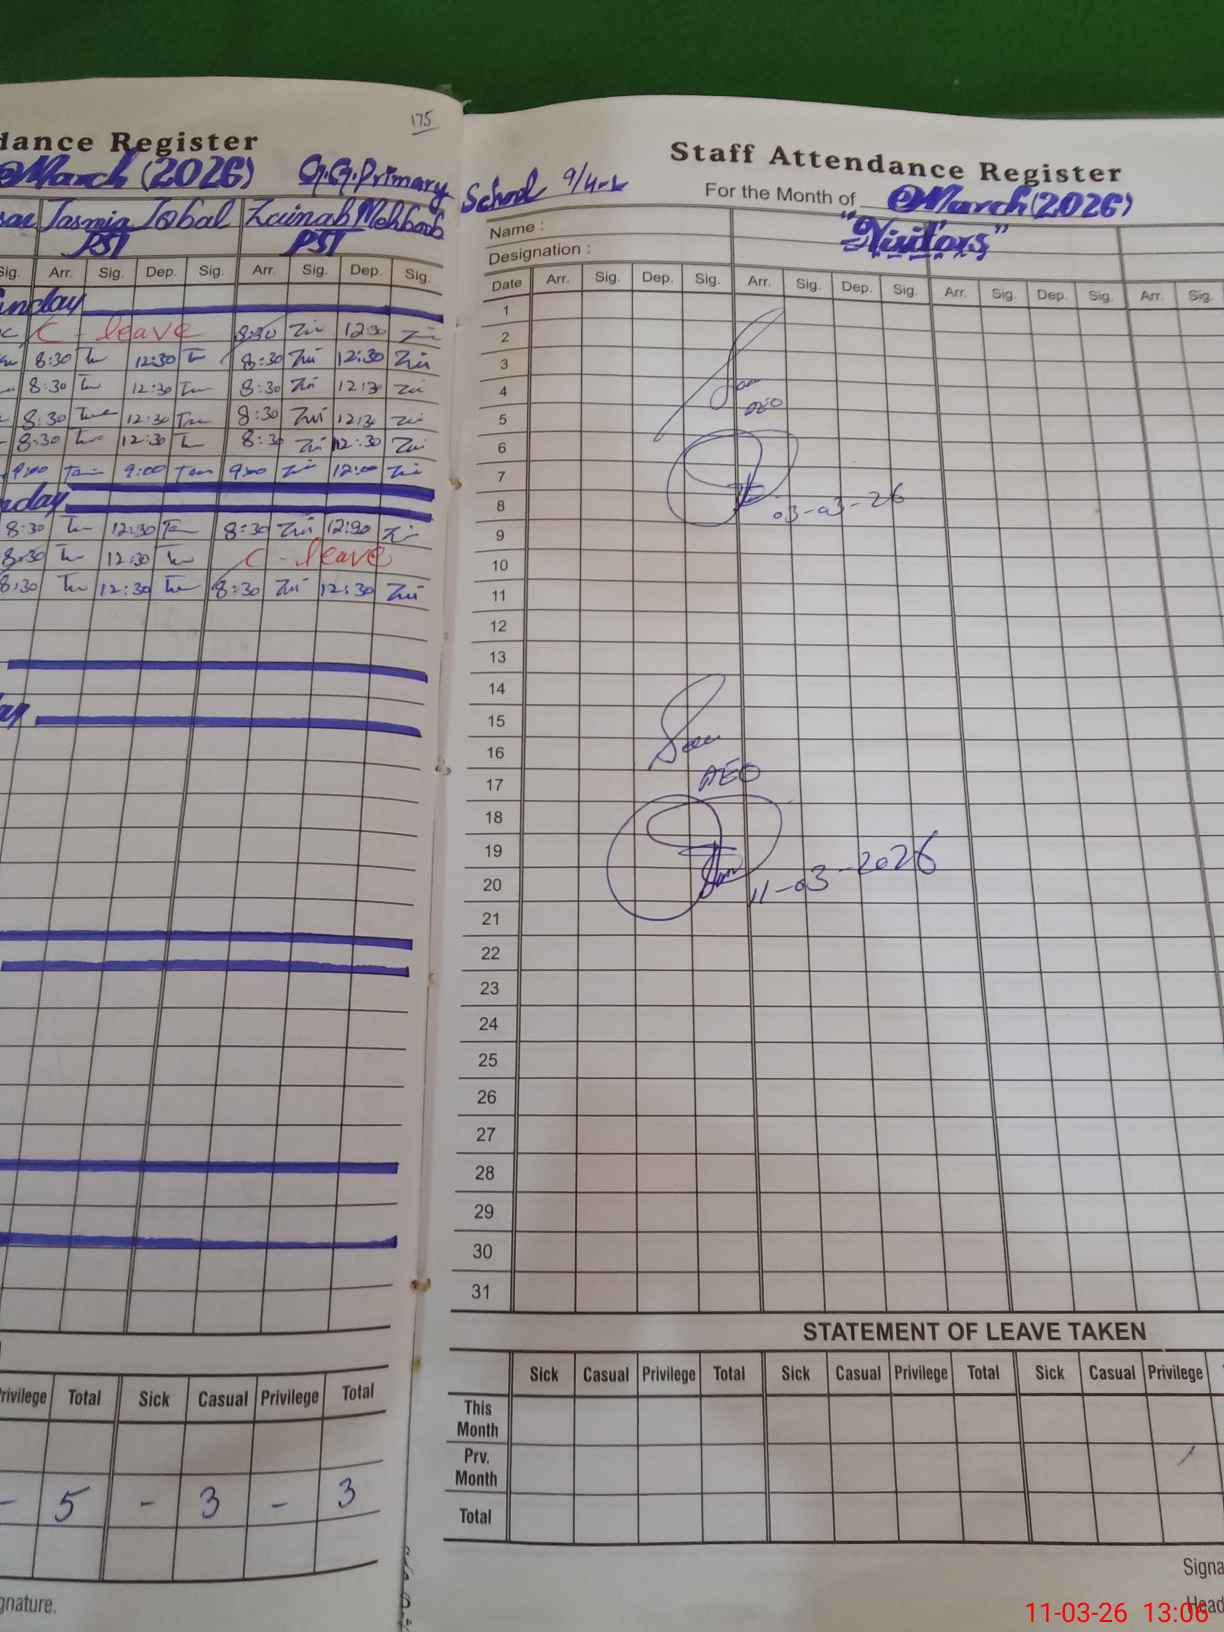 175
dance Register
March (2026) G.G.Primary
Jasmin Iqbal Zainab Mehboob
PST PST
Sig. Arr. Sig. Dep. Sig. Arr. Sig. Dep. Sig.
unday
C - leave 8:30 12:30
8:30 12:30 8:30 12:30
8:30 12:30 8:30 12:30
8:30 12:30 8:30 12:30
8:30 12:30 8:30 12:30
9:00 9:00 9:00 12:00
nday
8:30 12:30 8:30 12:30
8:30 12:30 C - leave
8:30 12:30 8:30 12:30
Privilege Total Sick Casual Privilege Total
- 5 - 3 - 3
gnature.
Staff Attendance Register
School 9/4-L
For the Month of March (2026)
Name :
"Visitors"
Designation :
Date Arr. Sig. Dep. Sig. Arr. Sig. Dep. Sig. Arr. Sig. Dep. Sig. Arr. Sig.
1
2
3
4
AEO
5
6
7
8 03-03-26
9
10
11
12
13
14
15
16
AEO
17
18
19
20 11-03-2026
21
22
23
24
25
26
27
28
29
30
31
STATEMENT OF LEAVE TAKEN
Sick Casual Privilege Total Sick Casual Privilege Total Sick Casual Privilege
This
Month
Prv.
Month
Total
Signa
Head
11-03-26 13:06